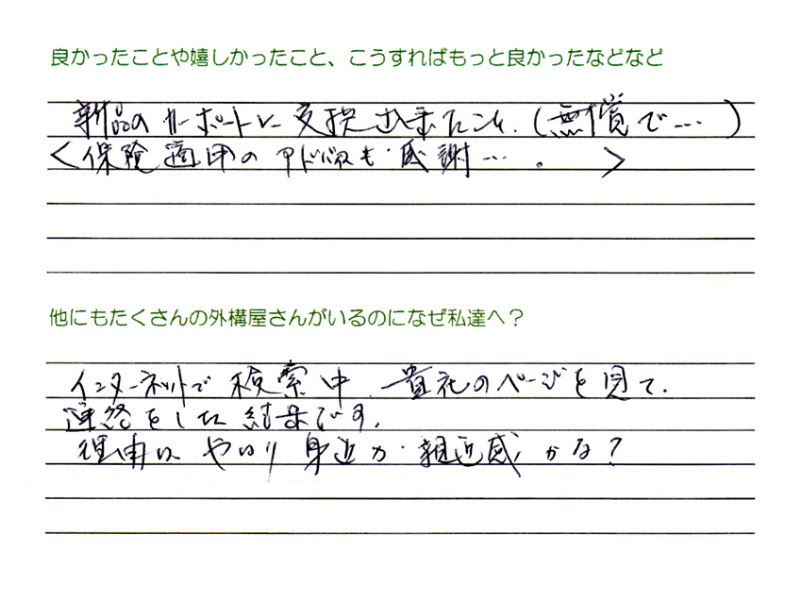 良かったことや嬉しかったこと、こうすればもっと良かったなどなど
新品のカーポートに交換出来たこと.(無償で…)
<保険適用のアドバイスも感謝…。>
他にもたくさんの外構屋さんがいるのになぜ私達へ？
インターネットで検索中、貴社のページを見て、
連絡をした結果です。
理由は やはり 身近か・親近感かな？